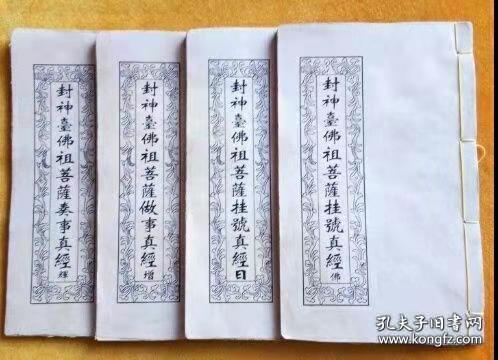 封神臺佛祖菩薩掛號真經佛
封神臺佛祖菩薩掛號真經日
封神臺佛祖菩薩做事真經增
封神臺佛祖菩薩奏事真經輝
孔夫子旧书网
www.kongfz.com